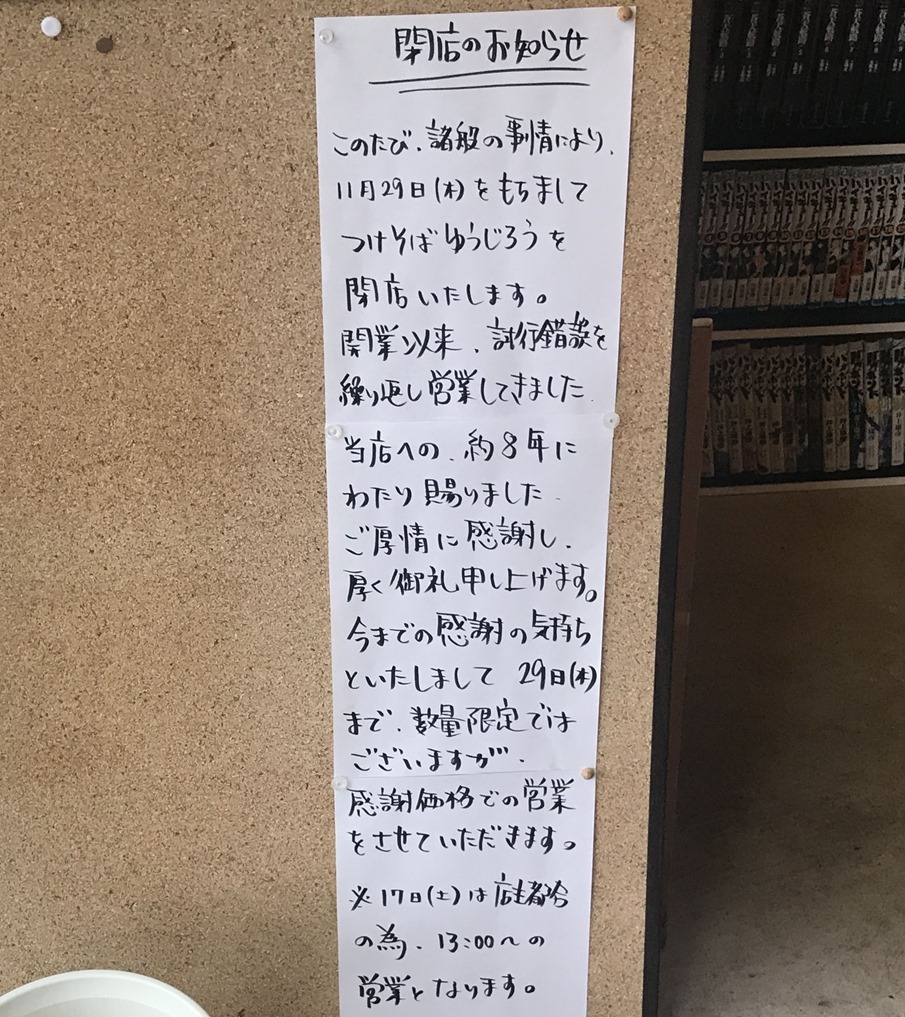 閉店のお知らせ
このたび、諸般の事情により、
11月29日(木)をもちまして
つけそば ゆうじろうを
閉店いたします。
開業以来、試行錯誤を
繰り返し営業してきました。
当店への、約8年に
わたり賜りました
ご厚情に感謝し、
厚く御礼申し上げます。
今までの感謝の気持ち
といたしまして 29日(木)
まで、数量限定では
ございますが、
感謝価格での営業
をさせていただきます。
※17日(土)は店主都合
の為、13:00〜の
営業となります。